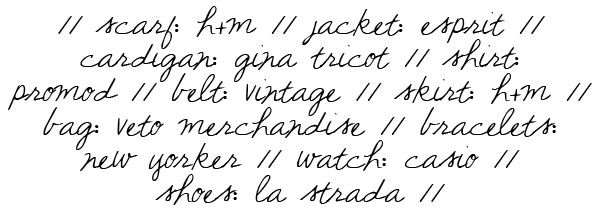 // scarf: h+m // jacket: esprit //
cardigan: gina tricot // shirt:
promod // belt: vintage // skirt: h+m //
bag: veto merchandise // bracelets:
new yorker // watch: casio //
shoes: la strada //